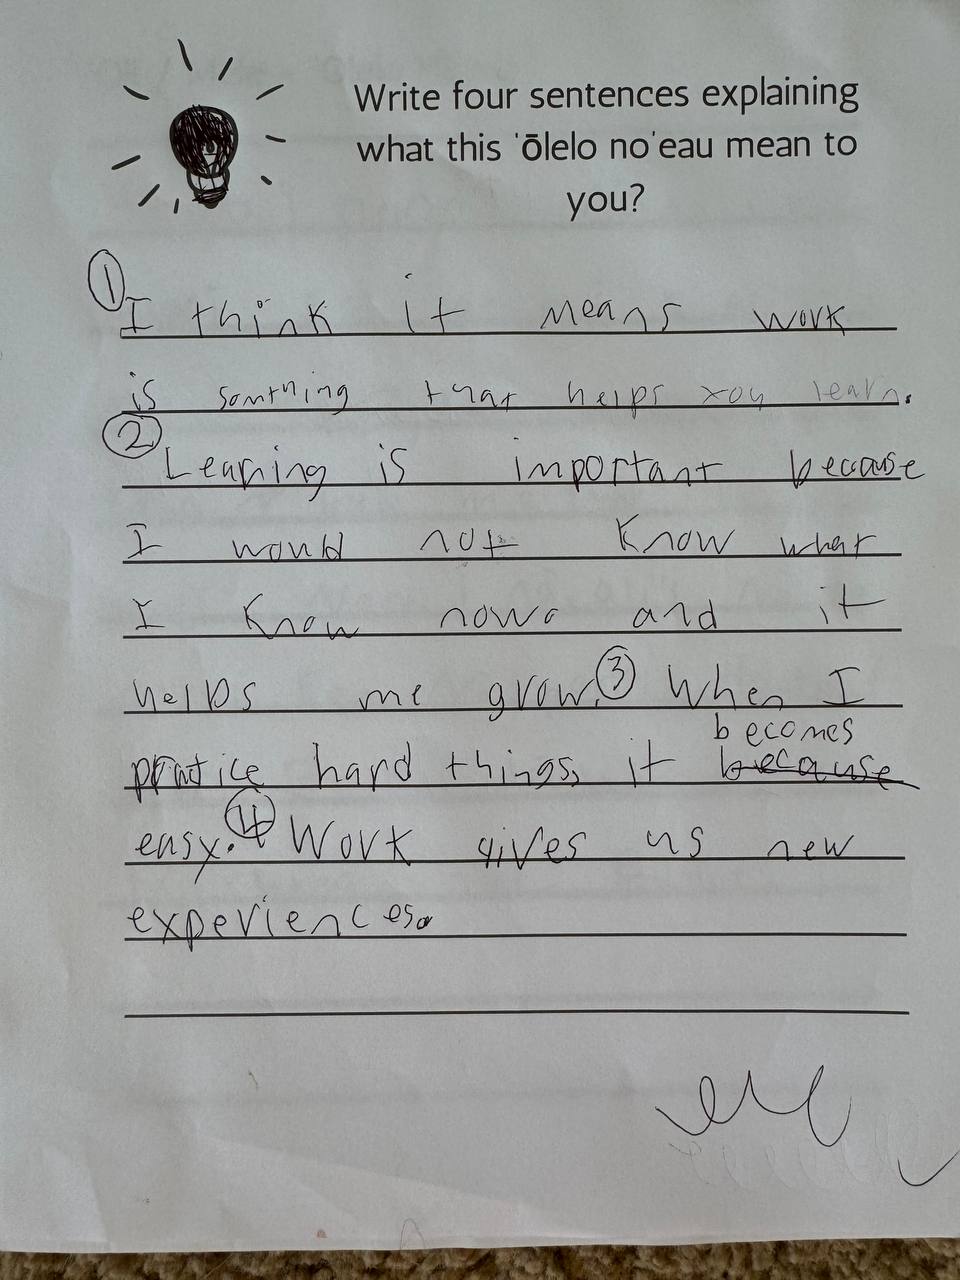 Write four sentences explaining
what this ʻōlelo noʻeau mean to
you?
① I think it means work
is somthing that helps you learn.
② Learning is important because
I would not know what
I know now. and it
helps me grow. ③ When I
becomes
practice hard things, it because
easy. ④ Work gives us new
experiences.